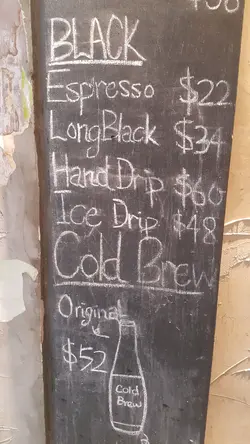 BLACK
Espresso $22
LongBlack $34
Hand Drip $60
Ice Drip $48
Cold Brew
Original
$52
Cold
Brew